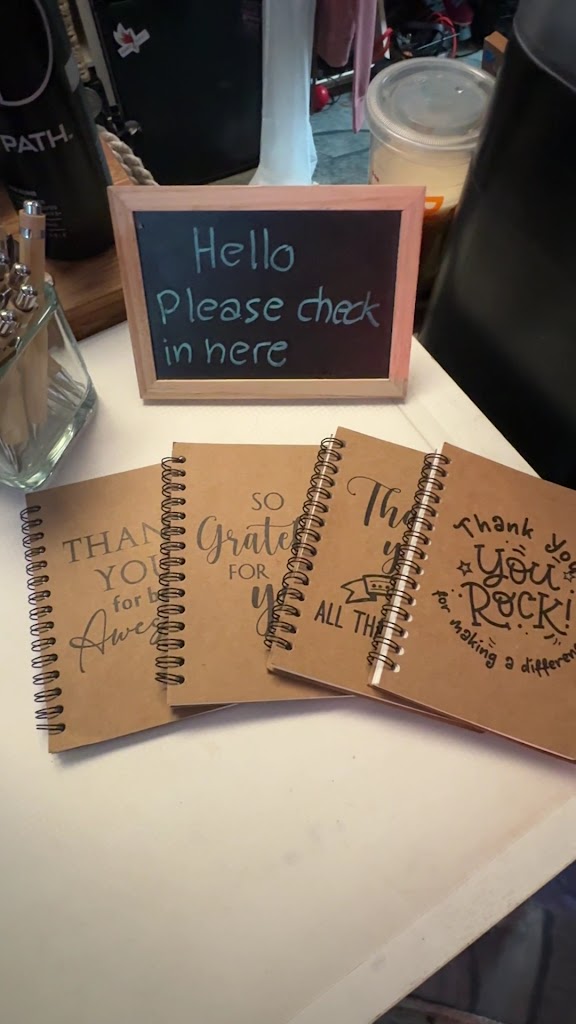 PATH
Hello
Please check
in here
THAN
YOU
for b
Awes
SO
Gratef
FOR
y
Tha
y
ALL TH
Thank you
YOU
ROCK!
for making a differen